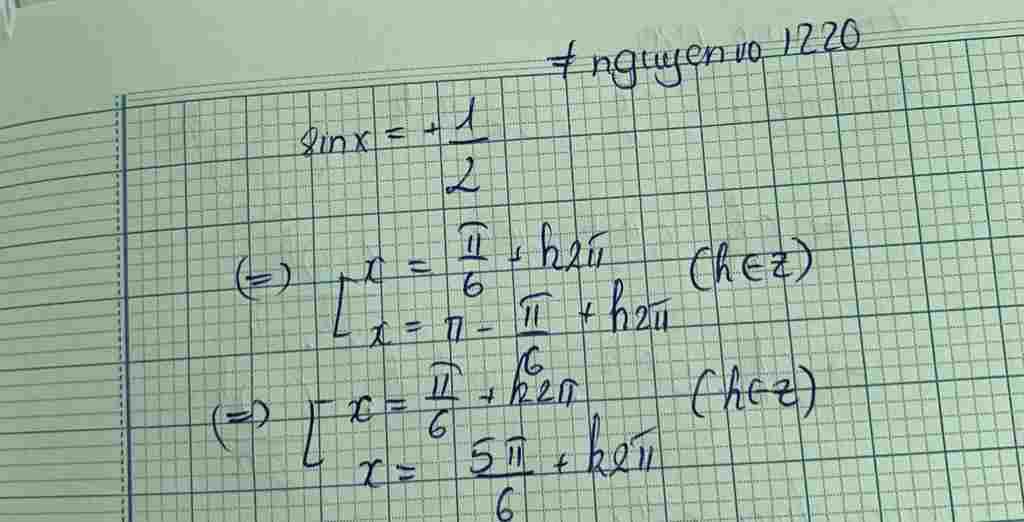 ≠ nguyenvo 1220
sinx = + 1/2
(=) [ x = π/6 + k2π (k∈z)
x = π - π/6 + k2π
(=) [ x = π/6 + k2π (k∈z)
x = 5π/6 + k2π